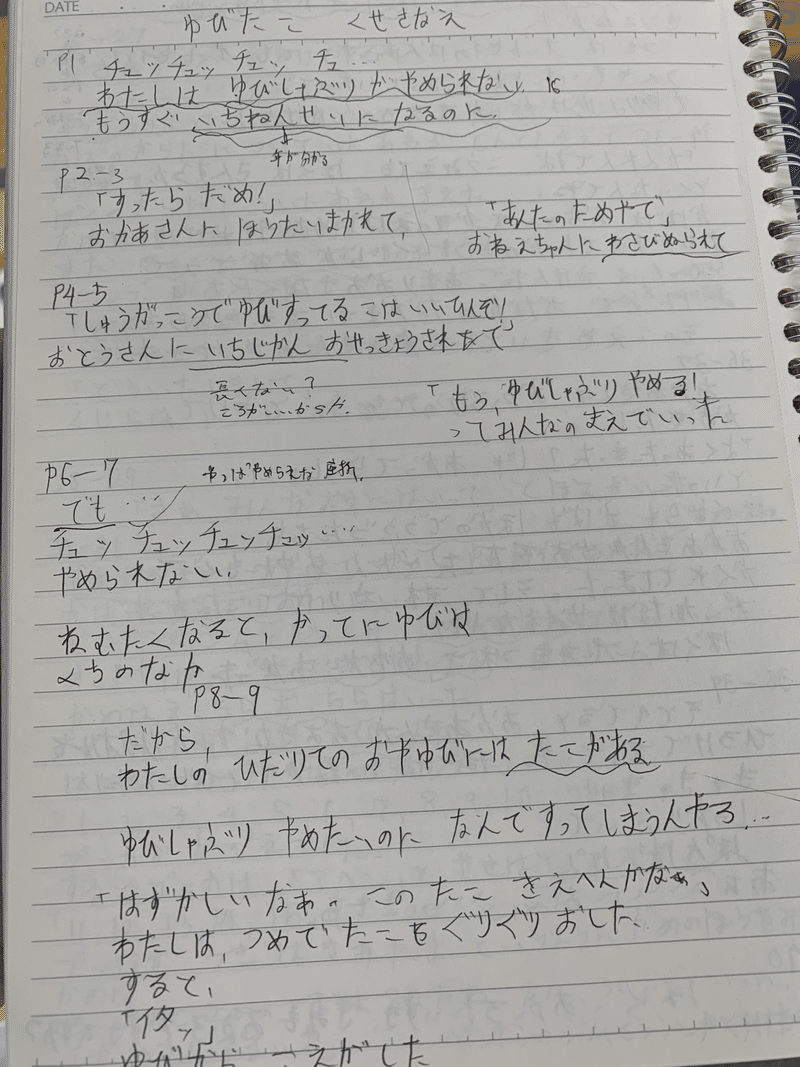 DATE
ゆびたこ くせさなえ
P1 チュッチュッ チュッ チュ…
わたしは ゆびしゃぶりが やめられない。 16
もうすぐ いちねんせいに なるのに。
年が分かる
P2-3
「すったら だめ!」
おかあさんに ほうたいまかれて、
「あんたのためやで」
おねえちゃんに わさびぬられて
P4-5
「しょうがっこうでゆびすってる こはいいひんぞ!」
おとうさんに いちじかん おせっきょうされたって
長くない?
「もう、ゆびしゃぶり やめる!
ってみんなのまえでいった
P6-7
やっぱやめらえな 挫折。
でも…
チュッ チュッチュッチュッ….
やめられないい
ねむたくなると、かってにゆびは
くちのなか
P8-9
だから、
わたしの ひだりての おやゆびには たこがある
ゆびしゃぶり やめたいのに なんですってしまうんやろ…
「はずかしいなぁ。このたこ きえへんかなぁ」
わたしは、つめで たこを ぐりぐり おした。
すると、
「イタッ」
ゆびから こえがした